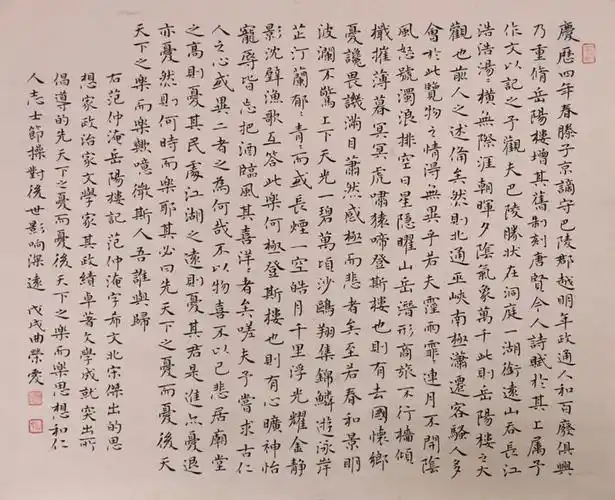 慶曆四年春滕子京謫守巴陵郡越明年政通人和百廢俱興
乃重修岳陽樓增其舊制刻唐賢今人詩賦於其上属予
作文以記之予觀夫巴陵勝状在洞庭一湖銜遠山吞長江
浩浩湯〻橫無際涯朝暉夕陰氣象萬千此則岳陽樓之大
觀也前人之述備矣然則北通巫峽南極瀟遷客騷人多
會於此覽物之情得無異乎若夫霪雨霏〻連月不開陰
風怒號濁浪排空日星隱曜山岳潛形商旅不行檣傾
檝摧薄暮冥冥虎嘯猿啼登斯樓也則有去國懷鄉
憂讒畏譏滿目蕭然感極而悲者矣至若春和景明
波瀾不驚上下天光一碧萬頃沙鷗翔集錦鱗游泳岸
芷汀蘭郁〻青〻而或長煙一空皓月千里浮光耀金静
影沈璧漁歌互答此樂何極登斯樓也則有心曠神怡
寵辱皆忘把酒臨風其喜洋〻者矣嗟夫予嘗求古仁
人之心或異二者之為何哉不以物喜不以己悲居廟堂
之高則憂其民處江湖之遠則憂其君是進亦憂退
亦憂然則何時而樂耶其必曰先天下之憂而憂後天
天下之樂而樂歟噫微斯人吾誰與歸
右范仲淹岳陽樓記范仲淹字希文北宗傑出的思
想家政治家文學家其政績卓著文學成就突出所
倡導的先天下之憂而憂後天下之樂而樂思想和仁
人志士節操對後世影响深遠 戊戌曲榮愛